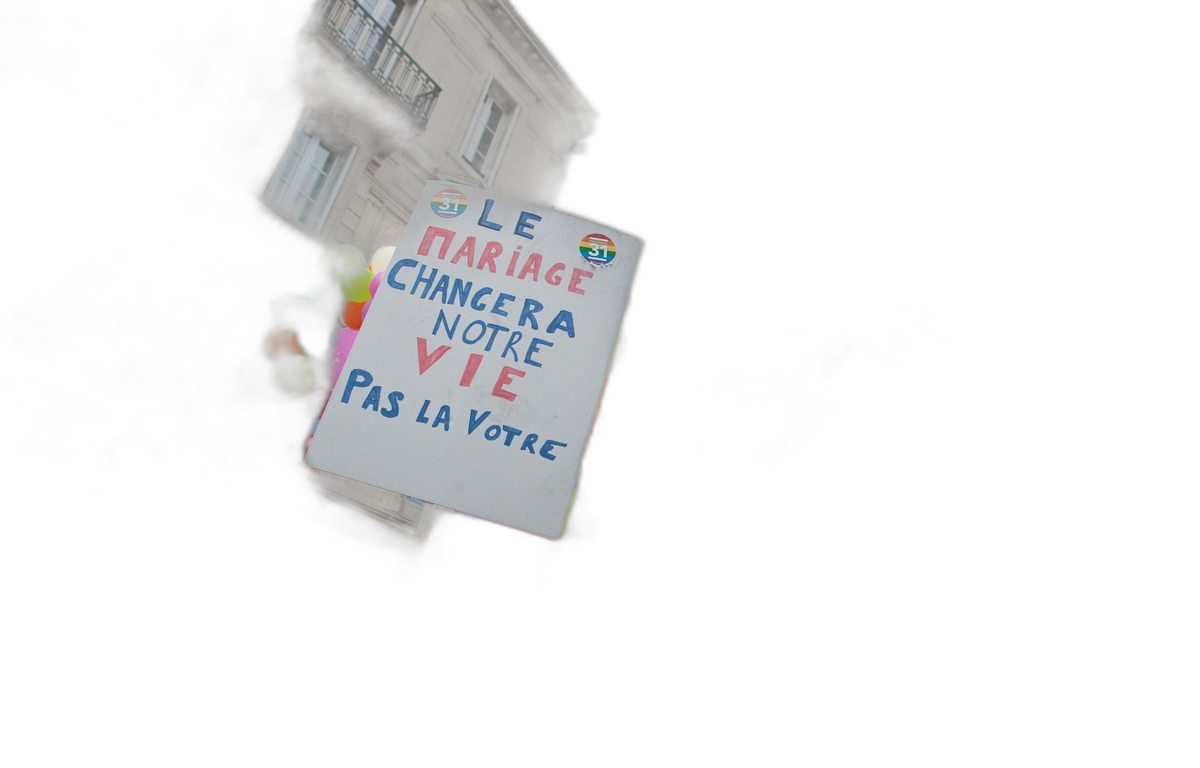 31
LE
31
MARiAGE
CHANGERA
NOTRE
VIE
PAS LA VOTRE